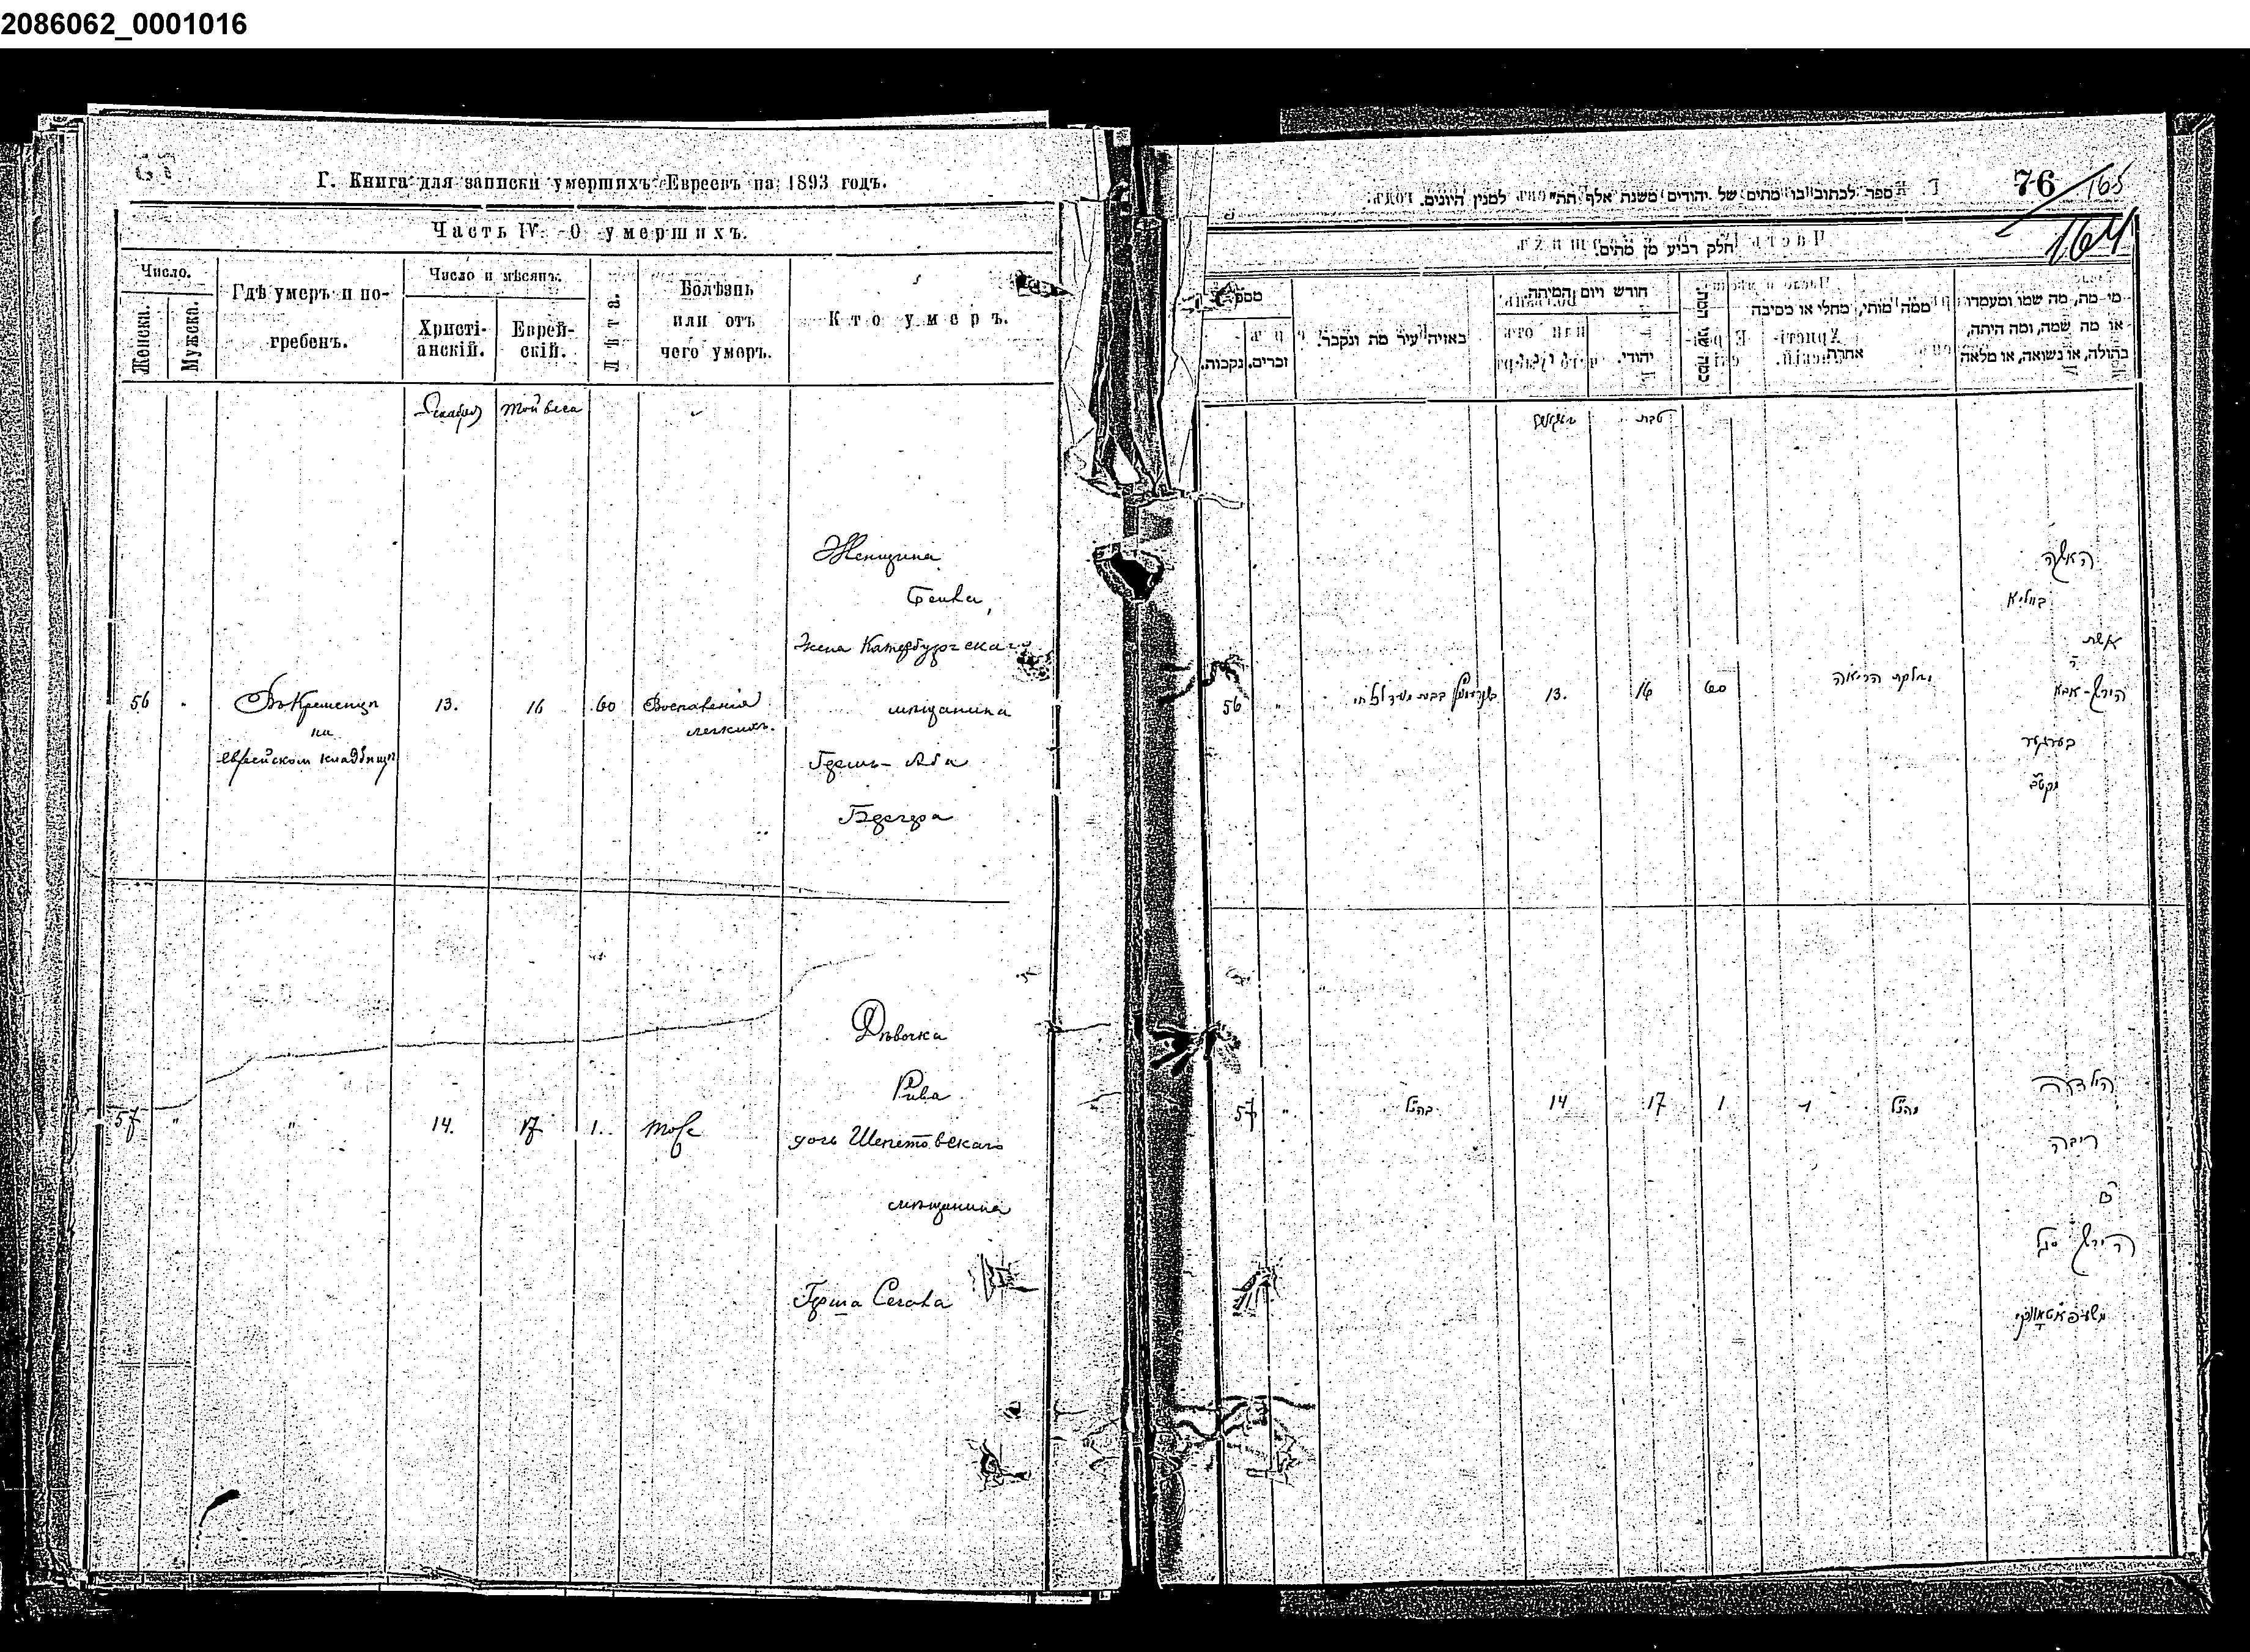 2086062_0001016
Г. Книга для записки умершихъ Евреевъ на 1893 годъ.
Часть IV. О умершихъ.
Число.
Женска.
Мужска.
Гдѣ умеръ и по-
гребенъ.
Число и мѣсяцъ.
Христі-
анскій.
Еврей-
скій.
Лѣта.
Болѣзнь
или отъ
чего умеръ.
Кто умеръ.
Декабря
56
Въ Кременцѣ
на
еврейском кладбищѣ
13.
16
60
Воспаленія
легкихъ.
Женщина
Бейла,
жена Катербургскаго
мѣщанина
Герша-Аба
57
"
"
14.
17
1.
тоже
Дѣвочка
Рива
дочь Шепетовскаго
мѣщанина
Герша Сегала
76
165
164
ספר לכתוב בו מתים של יהודים משנת אלף תת" למנין היונים.
חלק רביע מן מתים.
מספר
נקבות.
זכרים.
באיזה עיר מת ונקבר.
חורש ויום המיתה.
יהודי.
כמה שני המת.
ממה מותי, מחלי או מסיבה
אחרת
מי מת, מה שמו ומעמדו
או מה שמה, ומה היתה,
בתולה, או נשואה, או מלאה
טבת
56
"
13.
16
60
דלקת הריאה
האשה
ביילא
אשת
ר'
הירש-אבא
57
"
כהנ"ל
14
17
1
כהנ"ל
הילדה
ריבה
הירש סגל